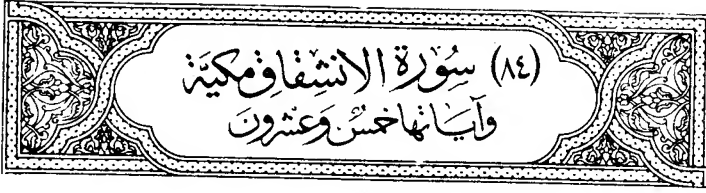 (٨٤) سُورَة الانشِقاقِ مَكيَّة
وَآيَاتهَا خَمسٌ وَعشرُونَ